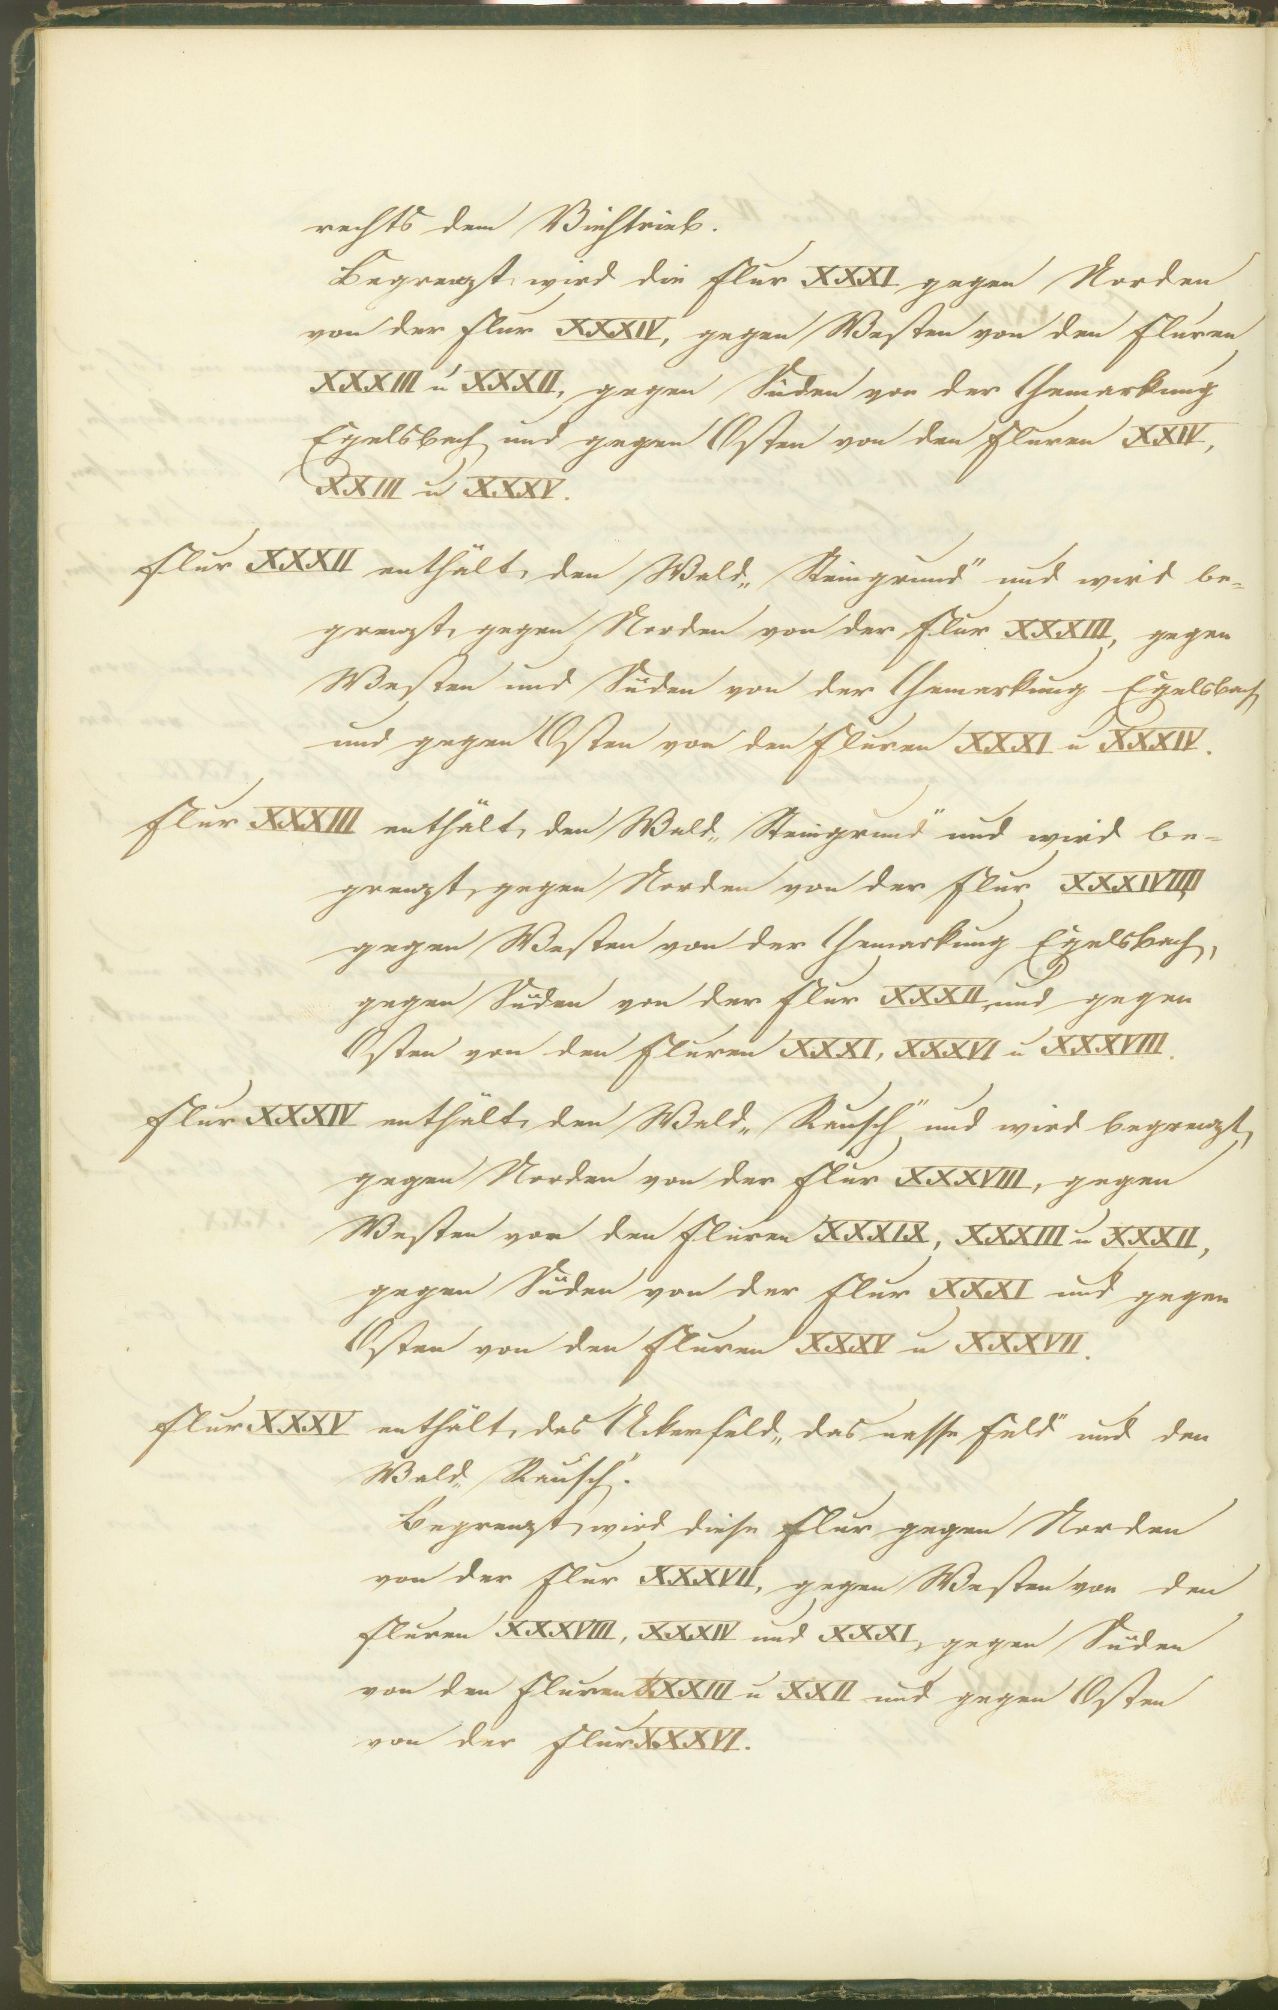 rechts dem Viehtrieb.
Begrenzt wird die Flur XXXI gegen Norden
von der Flur XXXIV, gegen Westen von den Fluren
XXXIII u XXXII, gegen Süden von der Gemarkung
Egelsbach und gegen Osten von den Fluren XXIV,
XXIII u XXXV.
Flur XXXII enthält den Wald „Steingrund“ und wird be-
grenzt gegen Norden von der Flur XXXIII, gegen
Westen und Süden von der Gemarkung Egelsbach
und gegen Osten von den Fluren XXXI u XXXIV.
Flur XXXIII enthält den Wald „Steingrund“ und wird be-
grenzt gegen Norden von der Flur
gegen Westen von der Gemarkung Egelsbach,
gegen Süden von der Flur XXXII und gegen
Osten von den Fluren XXXI, XXXVI u XXXVIII.
Flur XXXIV enthält den Wald „Rausch“ und wird begrenzt
gegen Norden von der Flur XXXVIII, gegen
Westen von den Fluren XXXIX, XXXIII u XXXII,
gegen Süden von der Flur XXXI und gegen
Osten von den Fluren XXXV u XXXVII.
Flur XXXV enthält das Ackerfeld „das nasse Feld“ und den
Wald „Rausch“.
Begrenzt wird diese Flur gegen Norden
von der Flur XXXVII, gegen Westen von den
Fluren XXXVIII, XXXIV und XXXI, gegen Süden
von den Fluren XXXIII u XXII und gegen Osten
von der Flur XXXVI.